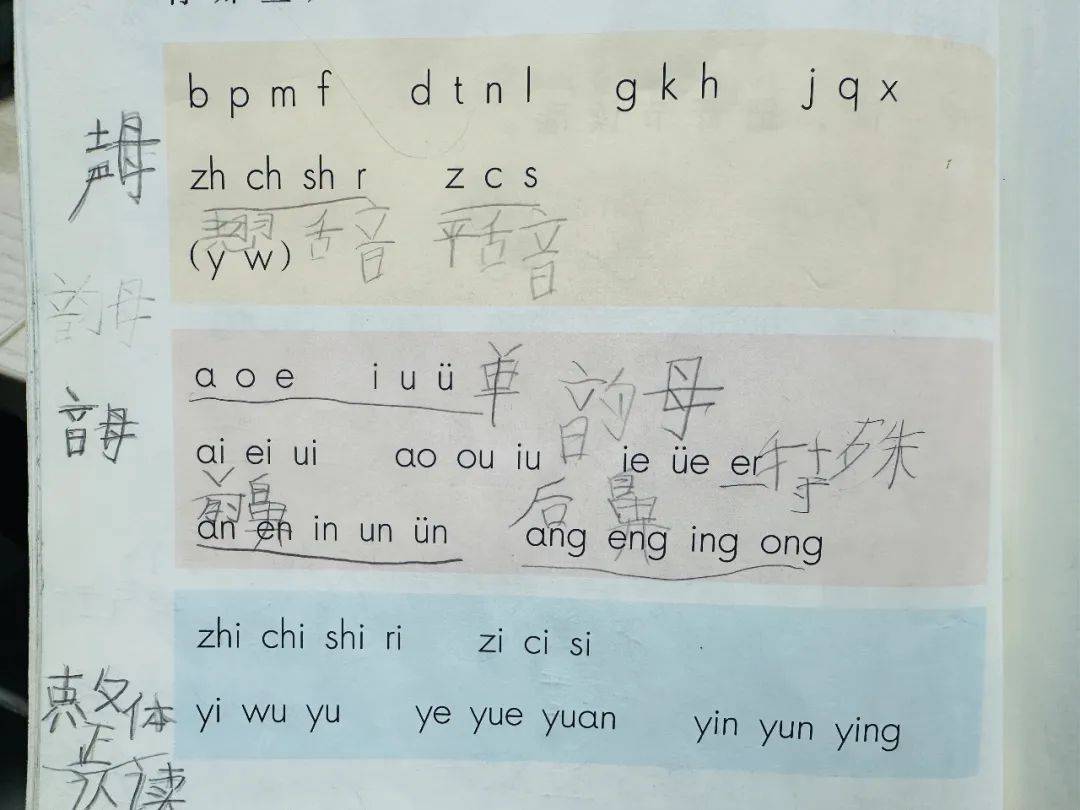 b p m f d t n l g k h j q x
声母
zh ch sh r z c s
翘舌音 平舌音
(y w)
韵母
a o e i u ü 单韵母
音母
ai ei ui ao ou iu ie üe er 特殊
前鼻 后鼻
an en in un ün ang eng ing ong
zhi chi shi ri zi ci si
yi wu yu ye yue yuan yin yun ying
整体
认读